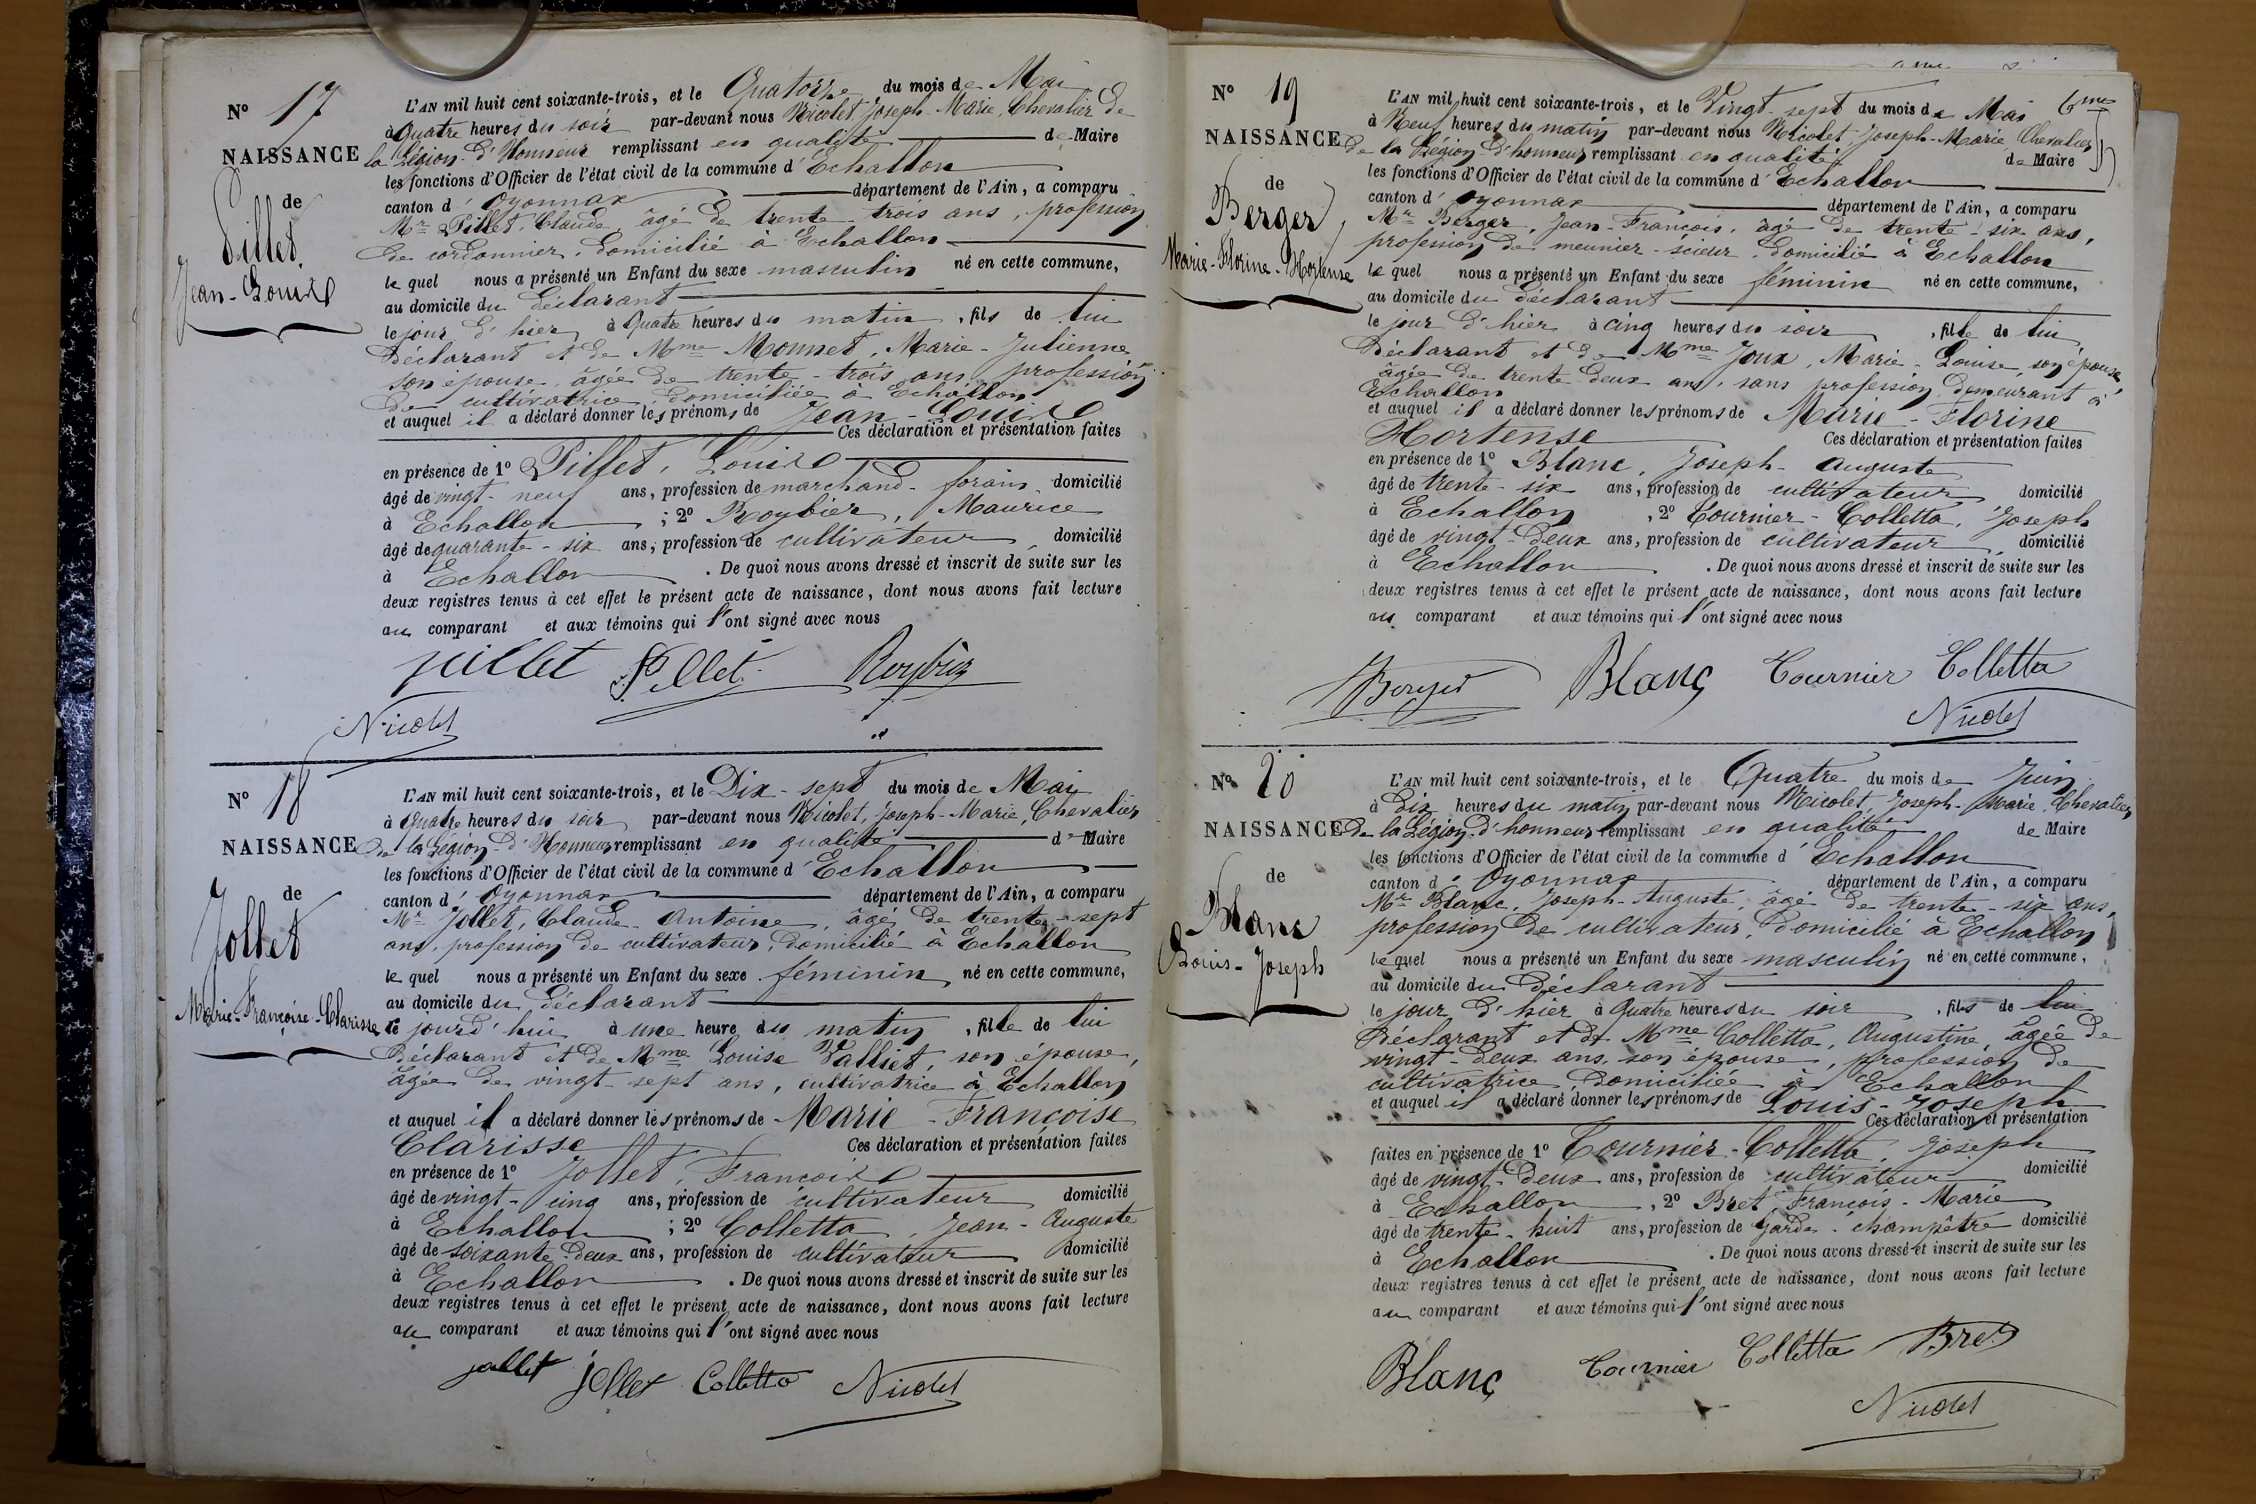 N° 17
NAISSANCE
de
Pillet
Jean-Louis
L'AN mil huit cent soixante-trois, et le Quatorze du mois de Mai
à Quatre heures du soir par-devant nous Nicolet, Joseph-Marie, Chevalier de
la Légion d'Honneur remplissant en qualité de Maire
les fonctions d'Officier de l'état civil de la commune d'Echallon
canton d'Oyonnax département de l'Ain, a comparu
Mr Pillet, Claude, âgé de trente-trois ans, profession
de cordonnier, domicilié à Echallon
lequel nous a présenté un Enfant du sexe masculin né en cette commune,
au domicile du déclarant
le jour d'hier à Quatre heures du matin, fils de lui
déclarant et de Mme Monnet, Marie-Julienne
son épouse, âgée de trente-trois ans, profession
de cultivatrice, domiciliée à Echallon
et auquel il a déclaré donner les prénoms de Jean-Louis
Ces déclaration et présentation faites
en présence de 1° Pillet, Louis
âgé de vingt-neuf ans, profession de marchand-forain domicilié
à Echallon ; 2° Roybier, Maurice
âgé de quarante-six ans, profession de cultivateur domicilié
à Echallon . De quoi nous avons dressé et inscrit de suite sur les
deux registres tenus à cet effet le présent acte de naissance, dont nous avons fait lecture
au comparant et aux témoins qui l'ont signé avec nous
pillet Pillet Roybier
Nicolet
N° 18
NAISSANCE
de
Jollet
Marie-Françoise-Clarisse
L'AN mil huit cent soixante-trois, et le Dix-sept du mois de Mai
à Quatre heures du soir par-devant nous Nicolet, Joseph-Marie, Chevalier
de la Légion d'Honneur remplissant en qualité de Maire
les fonctions d'Officier de l'état civil de la commune d'Echallon
canton d'Oyonnax département de l'Ain, a comparu
Mr Jollet, Claude-Antoine, âgé de trente-sept
ans, profession de cultivateur, domicilié à Echallon
lequel nous a présenté un Enfant du sexe féminin né en cette commune,
au domicile du déclarant
le jourd'hui à une heure du matin, fille de lui
déclarant et de Mme Louise Valliet, son épouse,
âgée de vingt-sept ans, cultivatrice à Echallon
et auquel il a déclaré donner les prénoms de Marie-Françoise
Clarisse Ces déclaration et présentation faites
en présence de 1° Jollet, François
âgé de vingt-cinq ans, profession de cultivateur domicilié
à Echallon ; 2° Colletta, Jean-Auguste
âgé de soixante-deux ans, profession de cultivateur domicilié
à Echallon . De quoi nous avons dressé et inscrit de suite sur les
deux registres tenus à cet effet le présent acte de naissance, dont nous avons fait lecture
au comparant et aux témoins qui l'ont signé avec nous
jollet jollet Colletta Nicolet
N° 19
NAISSANCE
de
Berger
Marie-Florine-Hortense
6me
L'AN mil huit cent soixante-trois, et le Vingt-sept du mois de Mai
à Neuf heures du matin par-devant nous Nicolet, Joseph-Marie, Chevalier
de la Légion d'honneur remplissant en qualité de Maire
les fonctions d'Officier de l'état civil de la commune d'Echallon
canton d'Oyonnax département de l'Ain, a comparu
Mr Berger, Jean-François, âgé de trente-six ans,
profession de meunier-scieur, domicilié à Echallon
lequel nous a présenté un Enfant du sexe féminin né en cette commune,
au domicile du déclarant
le jour d'hier à cinq heures du soir, fille de lui
déclarant et de Mme Joux, Marie-Louise, son épouse
âgée de trente-deux ans, sans profession, demeurant à
Echallon
et auquel il a déclaré donner les prénoms de Marie-Florine
Hortense Ces déclaration et présentation faites
en présence de 1° Blanc, Joseph-Auguste
âgé de trente-six ans, profession de cultivateur domicilié
à Echallon , 2° Tournier-Colletta, Joseph
âgé de vingt-deux ans, profession de cultivateur, domicilié
à Echallon . De quoi nous avons dressé et inscrit de suite sur les
deux registres tenus à cet effet le présent acte de naissance, dont nous avons fait lecture
au comparant et aux témoins qui l'ont signé avec nous
Berger Blanc Tournier Colletta
Nicolet
N° 20
NAISSANCE
de
Blanc
Louis-Joseph
L'AN mil huit cent soixante-trois, et le Quatre du mois de Juin
à Dix heures du matin par-devant nous Nicolet, Joseph-Marie, Chevalier
de la Légion d'honneur remplissant en qualité de Maire
les fonctions d'Officier de l'état civil de la commune d'Echallon
canton d'Oyonnax département de l'Ain, a comparu
Mr Blanc, Joseph-Auguste, âgé de trente-six ans,
profession de cultivateur, domicilié à Echallon
lequel nous a présenté un Enfant du sexe masculin né en cette commune,
au domicile du déclarant
le jour d'hier à Quatre heures du soir, fils de lui
déclarant et de Mme Colletta, Augustine, âgée de
vingt-deux ans, son épouse, profession de
cultivatrice, domiciliée à Echallon
et auquel il a déclaré donner les prénoms de Louis-Joseph
Ces déclaration et présentation
faites en présence de 1° Tournier-Colletta, Joseph
âgé de vingt-deux ans, profession de cultivateur domicilié
à Echallon , 2° Bret, François-Marie
âgé de trente-huit ans, profession de Garde-champêtre domicilié
à Echallon . De quoi nous avons dressé et inscrit de suite sur les
deux registres tenus à cet effet le présent acte de naissance, dont nous avons fait lecture
au comparant et aux témoins qui l'ont signé avec nous
Blanc Tournier Colletta Bret
Nicolet